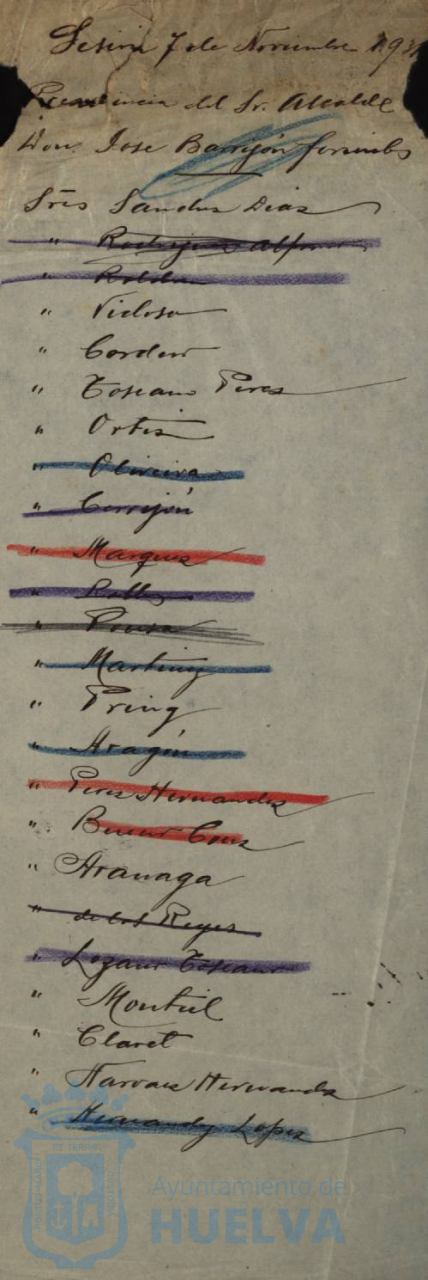 Sesion 7 de Noviembre 193
Presidencia del Sr. Alcalde
Don Jose Barrigón
Sres Sanchez Diaz
" Rodriguez Alfonso
" Roldan
" Vidosa
" Cordero
" Toscano Perez
" Ortiz
" Oliveira
" Cerrejón
" Marquez
"
" Ponce
" Martinez
" Pring
" Aragón
" Perez Hernandez
" Bueno Cruz
" Aranaga
" de los Reyes
" Lozano Toscano
" Montiel
" Claret
" Narvaez Hernandez
" Hernandez Lopez
Ayuntamiento de
HUELVA